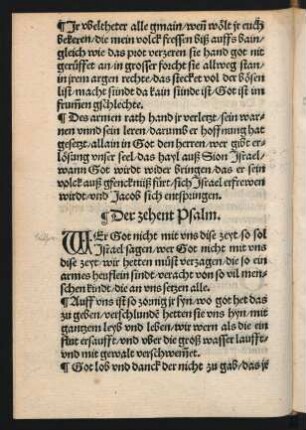 ¶ Jr vbeltheter alle gmain/wen̄ wölt je euch
bekeren/die mein volck fressen biß auffs bain/
gleich wie das prot verzeren sie hand got nit
gerüffet an/in grosser forcht sie allweg stan/
in jrem argen rechte/das stecket vol der bösen
list/macht sünde da kain sünde ist/Got ist im
frum̄en gschlechte.
¶ Des armen rath hand jr verletzt/sein war-
nen vnnd sein leren/darumb er hoffnung hat
gesetzt/allain in Got den herren/wer gibt er-
lösung vnser seel/das hayl auß Sion Jsrael/
wann Got wirdt wider bringen/das er sein
volck auß gfencknüß fürt/sich Jsrael erfrewen
wirdt/vnd Jacob sich entspringen.
¶ Der zehent Psalm.
WEr Got nicht mit vns dise zeyt so sol
Jsrael sagen/wer Got nicht mit vns
dise zeyt/wir hetten müst verzagen/die so ein
armes heuflein sindt/veracht von so vil men-
schen kindt/die an vns setzen alle.
¶ Auff vns ist so zörnig jr syn/wo got het das
zu geben/verschlundē hetten sie vns hyn/mit
gantzem leyb vnd leben/wir wern als die ein
flut ersaufft/vnd vber die groß wasser laufft/
vnd mit gewalt verschwem̄et.
¶ Got lob vnd danck der nicht zu gab/das jr